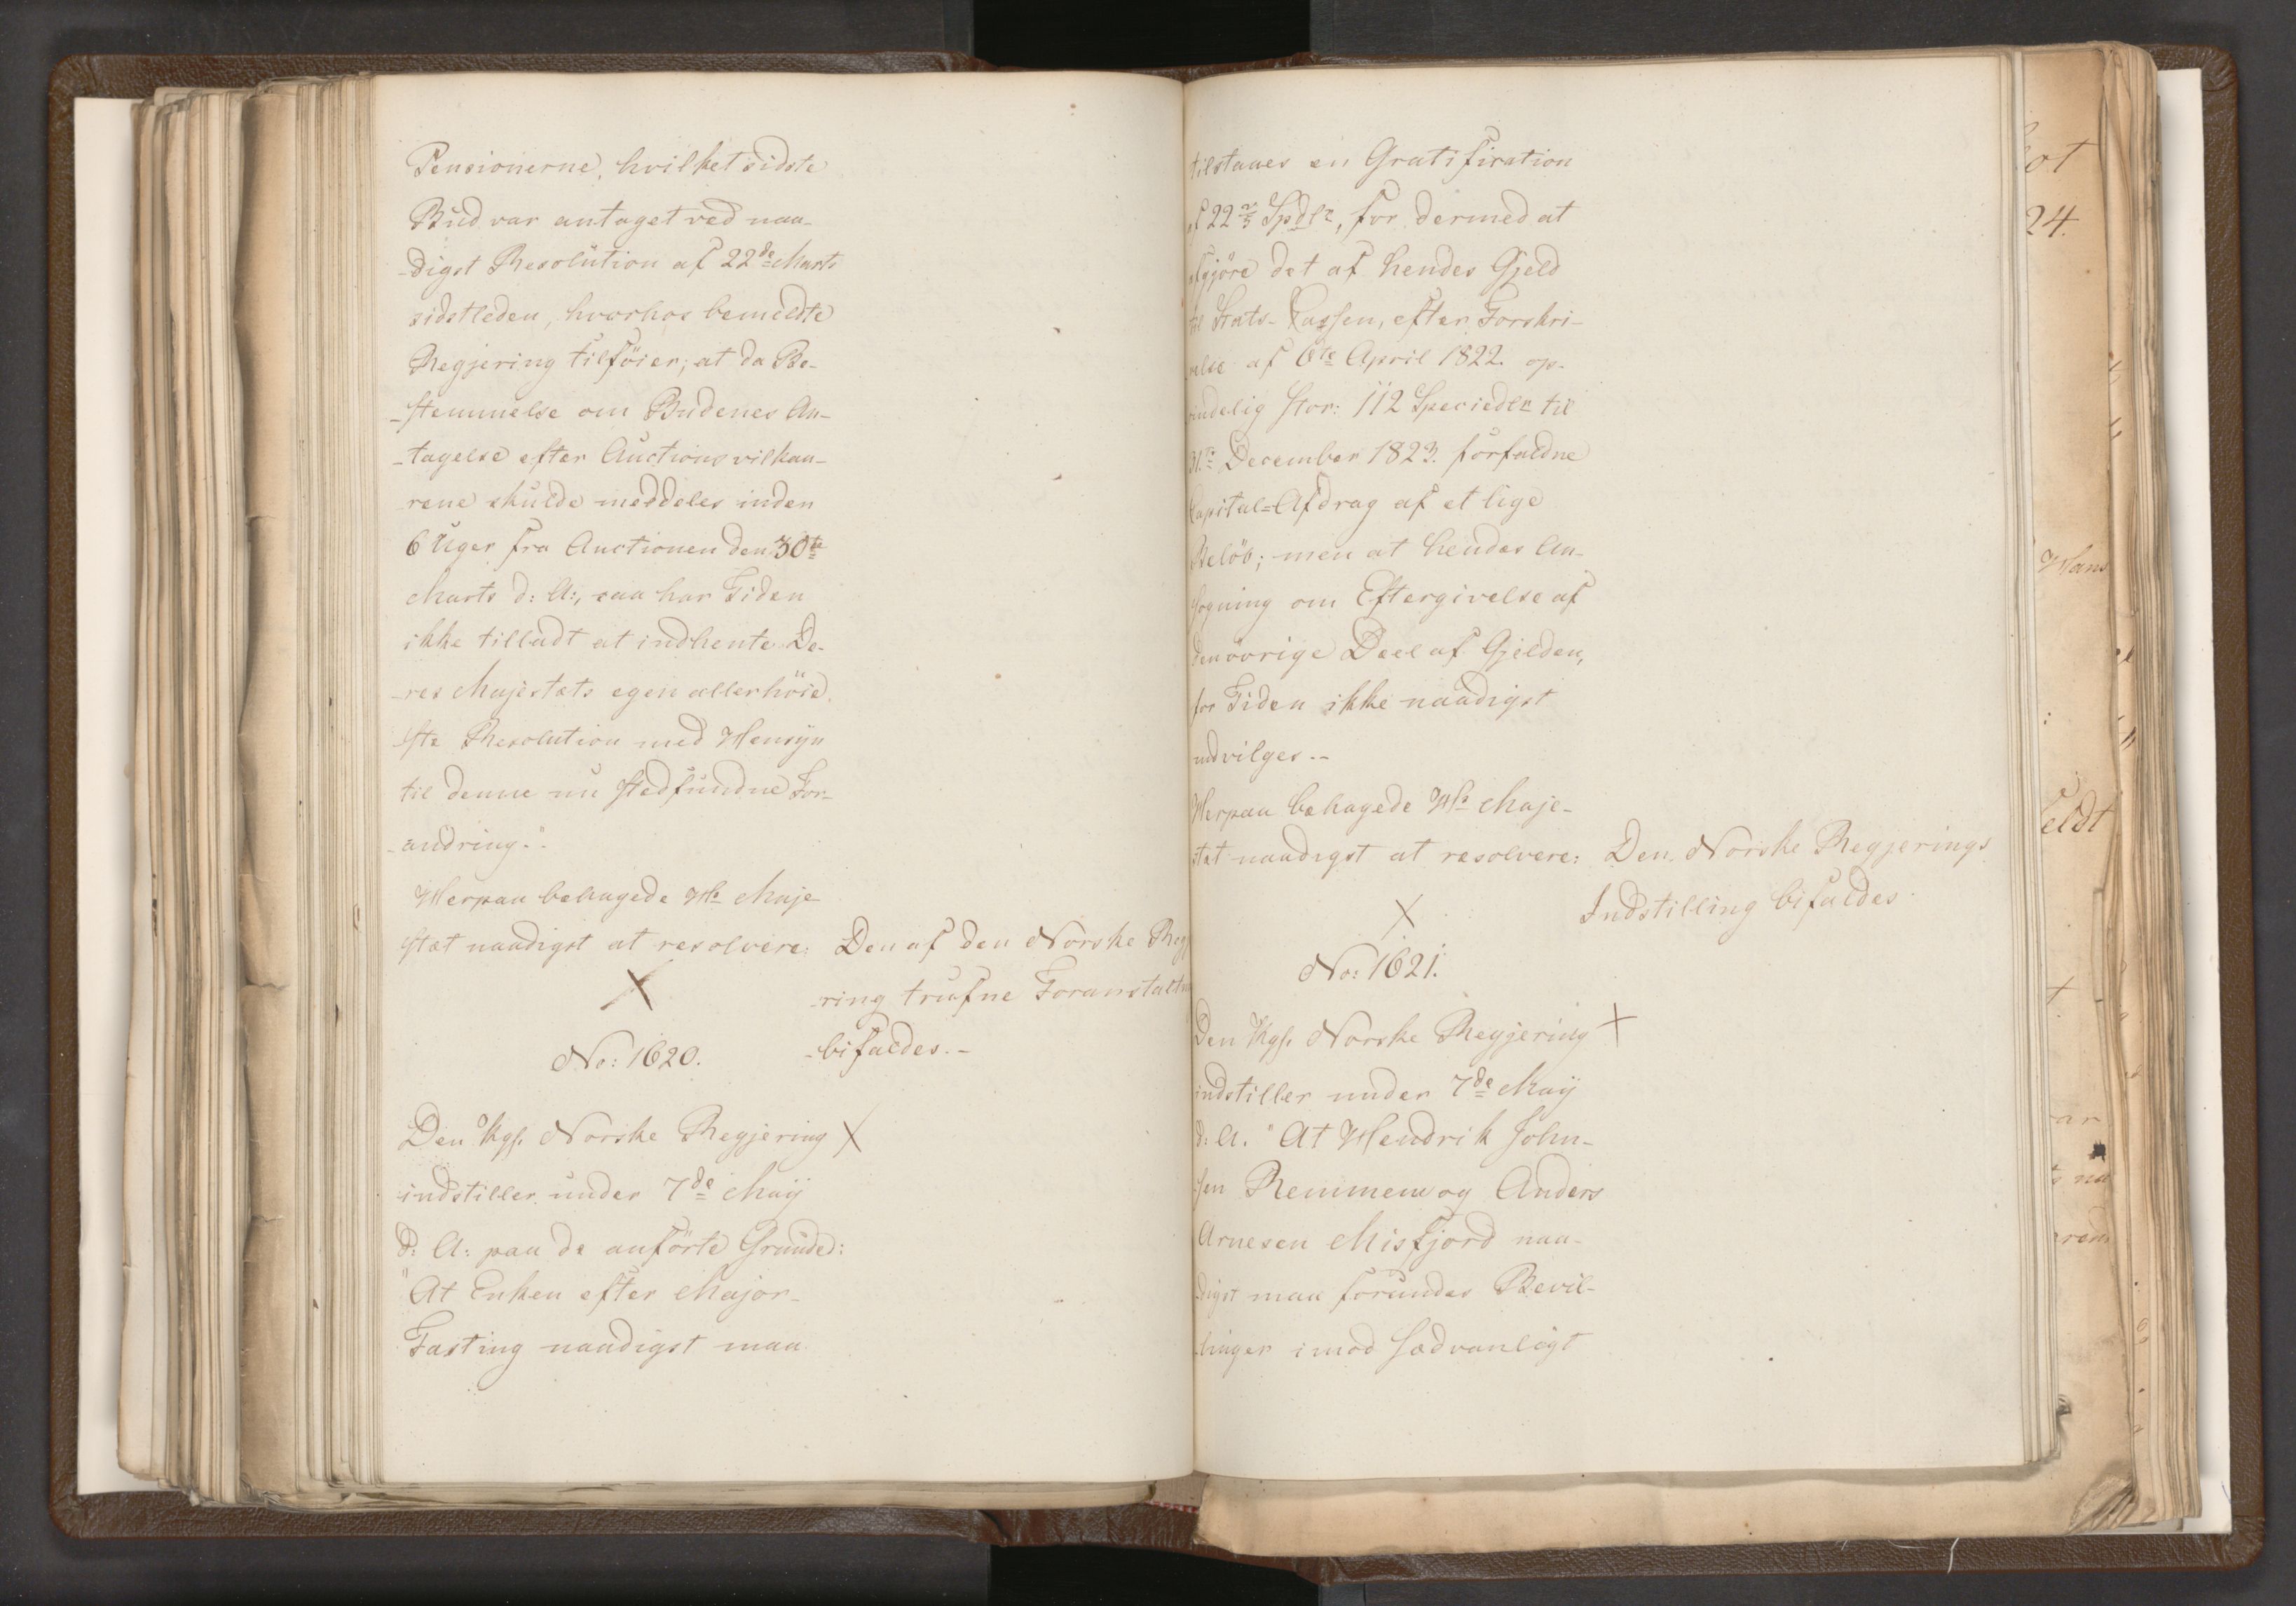 Pensionerne, hvilket sidste
Bud var antaget ved naa-
-digst Resolution af 22de Marts
sidstleden, hvorhos bemeldte
Regjering tilföier; at da Be-
-stemmelse om Budenes An-
-tagelse efter Auctionsvilkaa-
rene skulde meddeles inden
6 Uger fra Auctionen den 30te
Marts d: A:, saa har Tiden
ikke tilladt at indhente De-
-res Majestæts egen allerhöie-
ste Resolution med Hensyn
til denne nu stedfundne For-
-andring."
Herpaa behagede Hs Maje-
stæt naadigst at resolvere: Den af den Norske Reg
-ring trufne Foranstaltn
-bifaldes.-
No: 1620.
Den Kgl. Norske Regjering
indstiller under 7de Maij
d: A: paa de anförte Grunde:
"At Enken efter Major
Fasting naadigst maa
tilstaaes en Gratification
af 22 2/5 Spdlr, for dermed at
afgjöre det af hendes Gjeld
til Stats-Cassen, efter Forskri-
velse af 6te April 1822. op-
rindelig stor: 112 Speciedlr til
31te December 1823. forfaldne
Capital-Afdrag af et lige
Belöb; men at hendes An-
sögning om Eftergivelse af
den övrige Deel af Gjelden,
for Tiden ikke naadigst
indvilges.-
Herpaa behagede Hs Maje-
stæt naadigst at resolvere: Den Norske Regjerings
Indstilling bifaldes.
No: 1621.
Den Kgl. Norske Regjering
indstiller under 7de Maij
d: A. "At Hendrik John-
sen Remmem og Anders
Arnesen Misfjord naa-
digst maa forundes Bevil-
linger imod sædvanligt
ot
24.
Hans
eldt